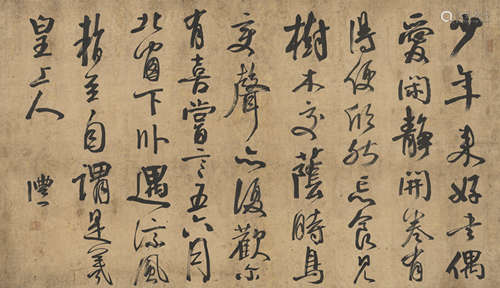 少年来好書偶
愛閑静開卷有
得便欣然忘食見
樹木交蔭時鳥
变聲亦復歡尔
有喜嘗言五六月
北窗下卧遇涼風
暫至自謂是羲
皇上人